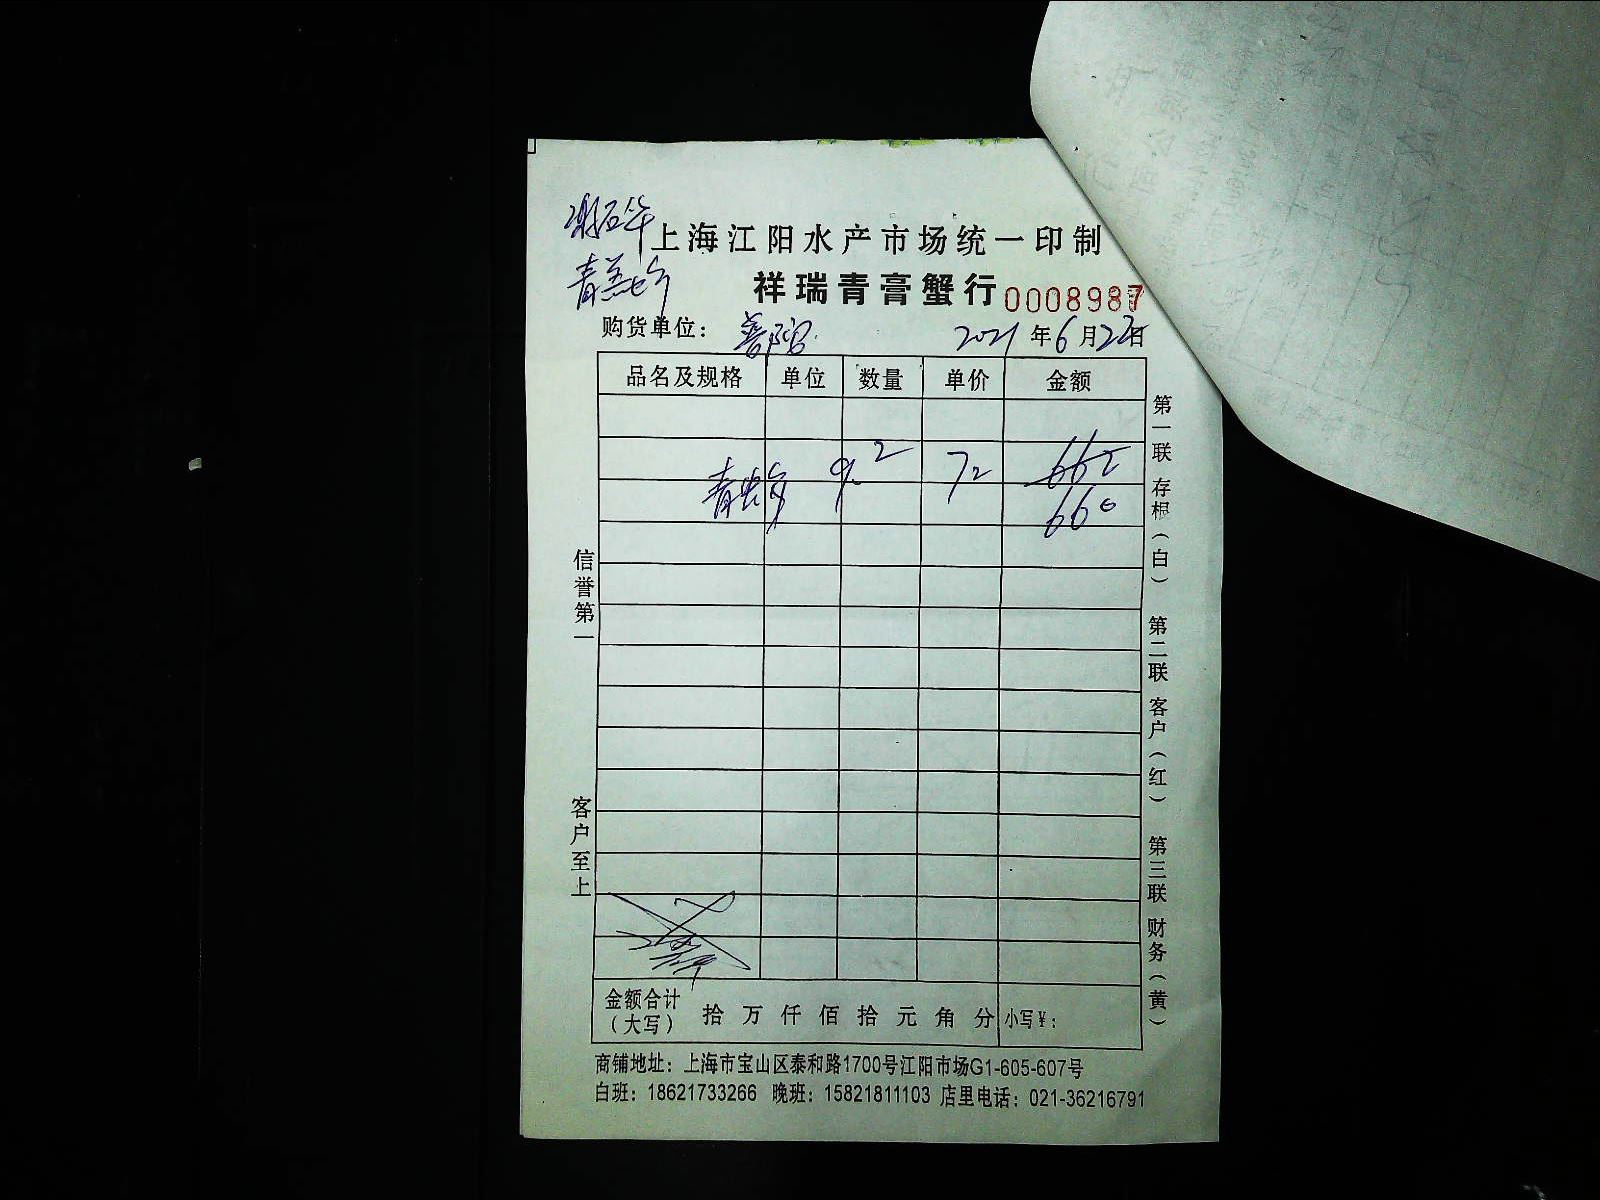 上海江阳水产市场统一印制
祥瑞青膏蟹行 0008987
购货单位: 2021年6月22日
品名及规格 单位 数量 单价 金额
青 9.2 72 662
660
信誉第一
客户至上
第一联 存根(白) 第二联 客户(红) 第三联 财务(黄)
金额合计(大写) 拾 万 仟 佰 拾 元 角 分 小写¥:
商铺地址: 上海市宝山区泰和路1700号江阳市场G1-605-607号
白班: 18621733266 晚班: 15821811103 店里电话: 021-36216791